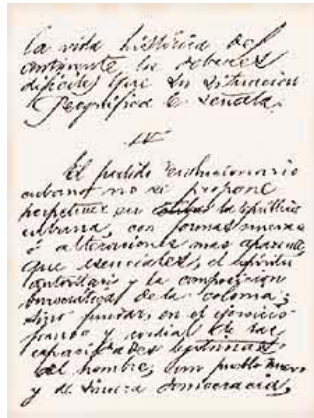 la vida histórica del
continente los deberes
difíciles que su situacion
geográfica le señala.
IV
El partido revolucionario
cubano no se propone
perpetuar en la república
cubana, con formas nuevas
ó alteraciones mas aparentes
que esenciales, el espíritu
autoritario y la composicion
burocrática de la colonia;
sino fundar, en el ejercicio
franco y cordial de las
capacidades legítimas
del hombre, un pueblo nuevo
y de sincera democracia,